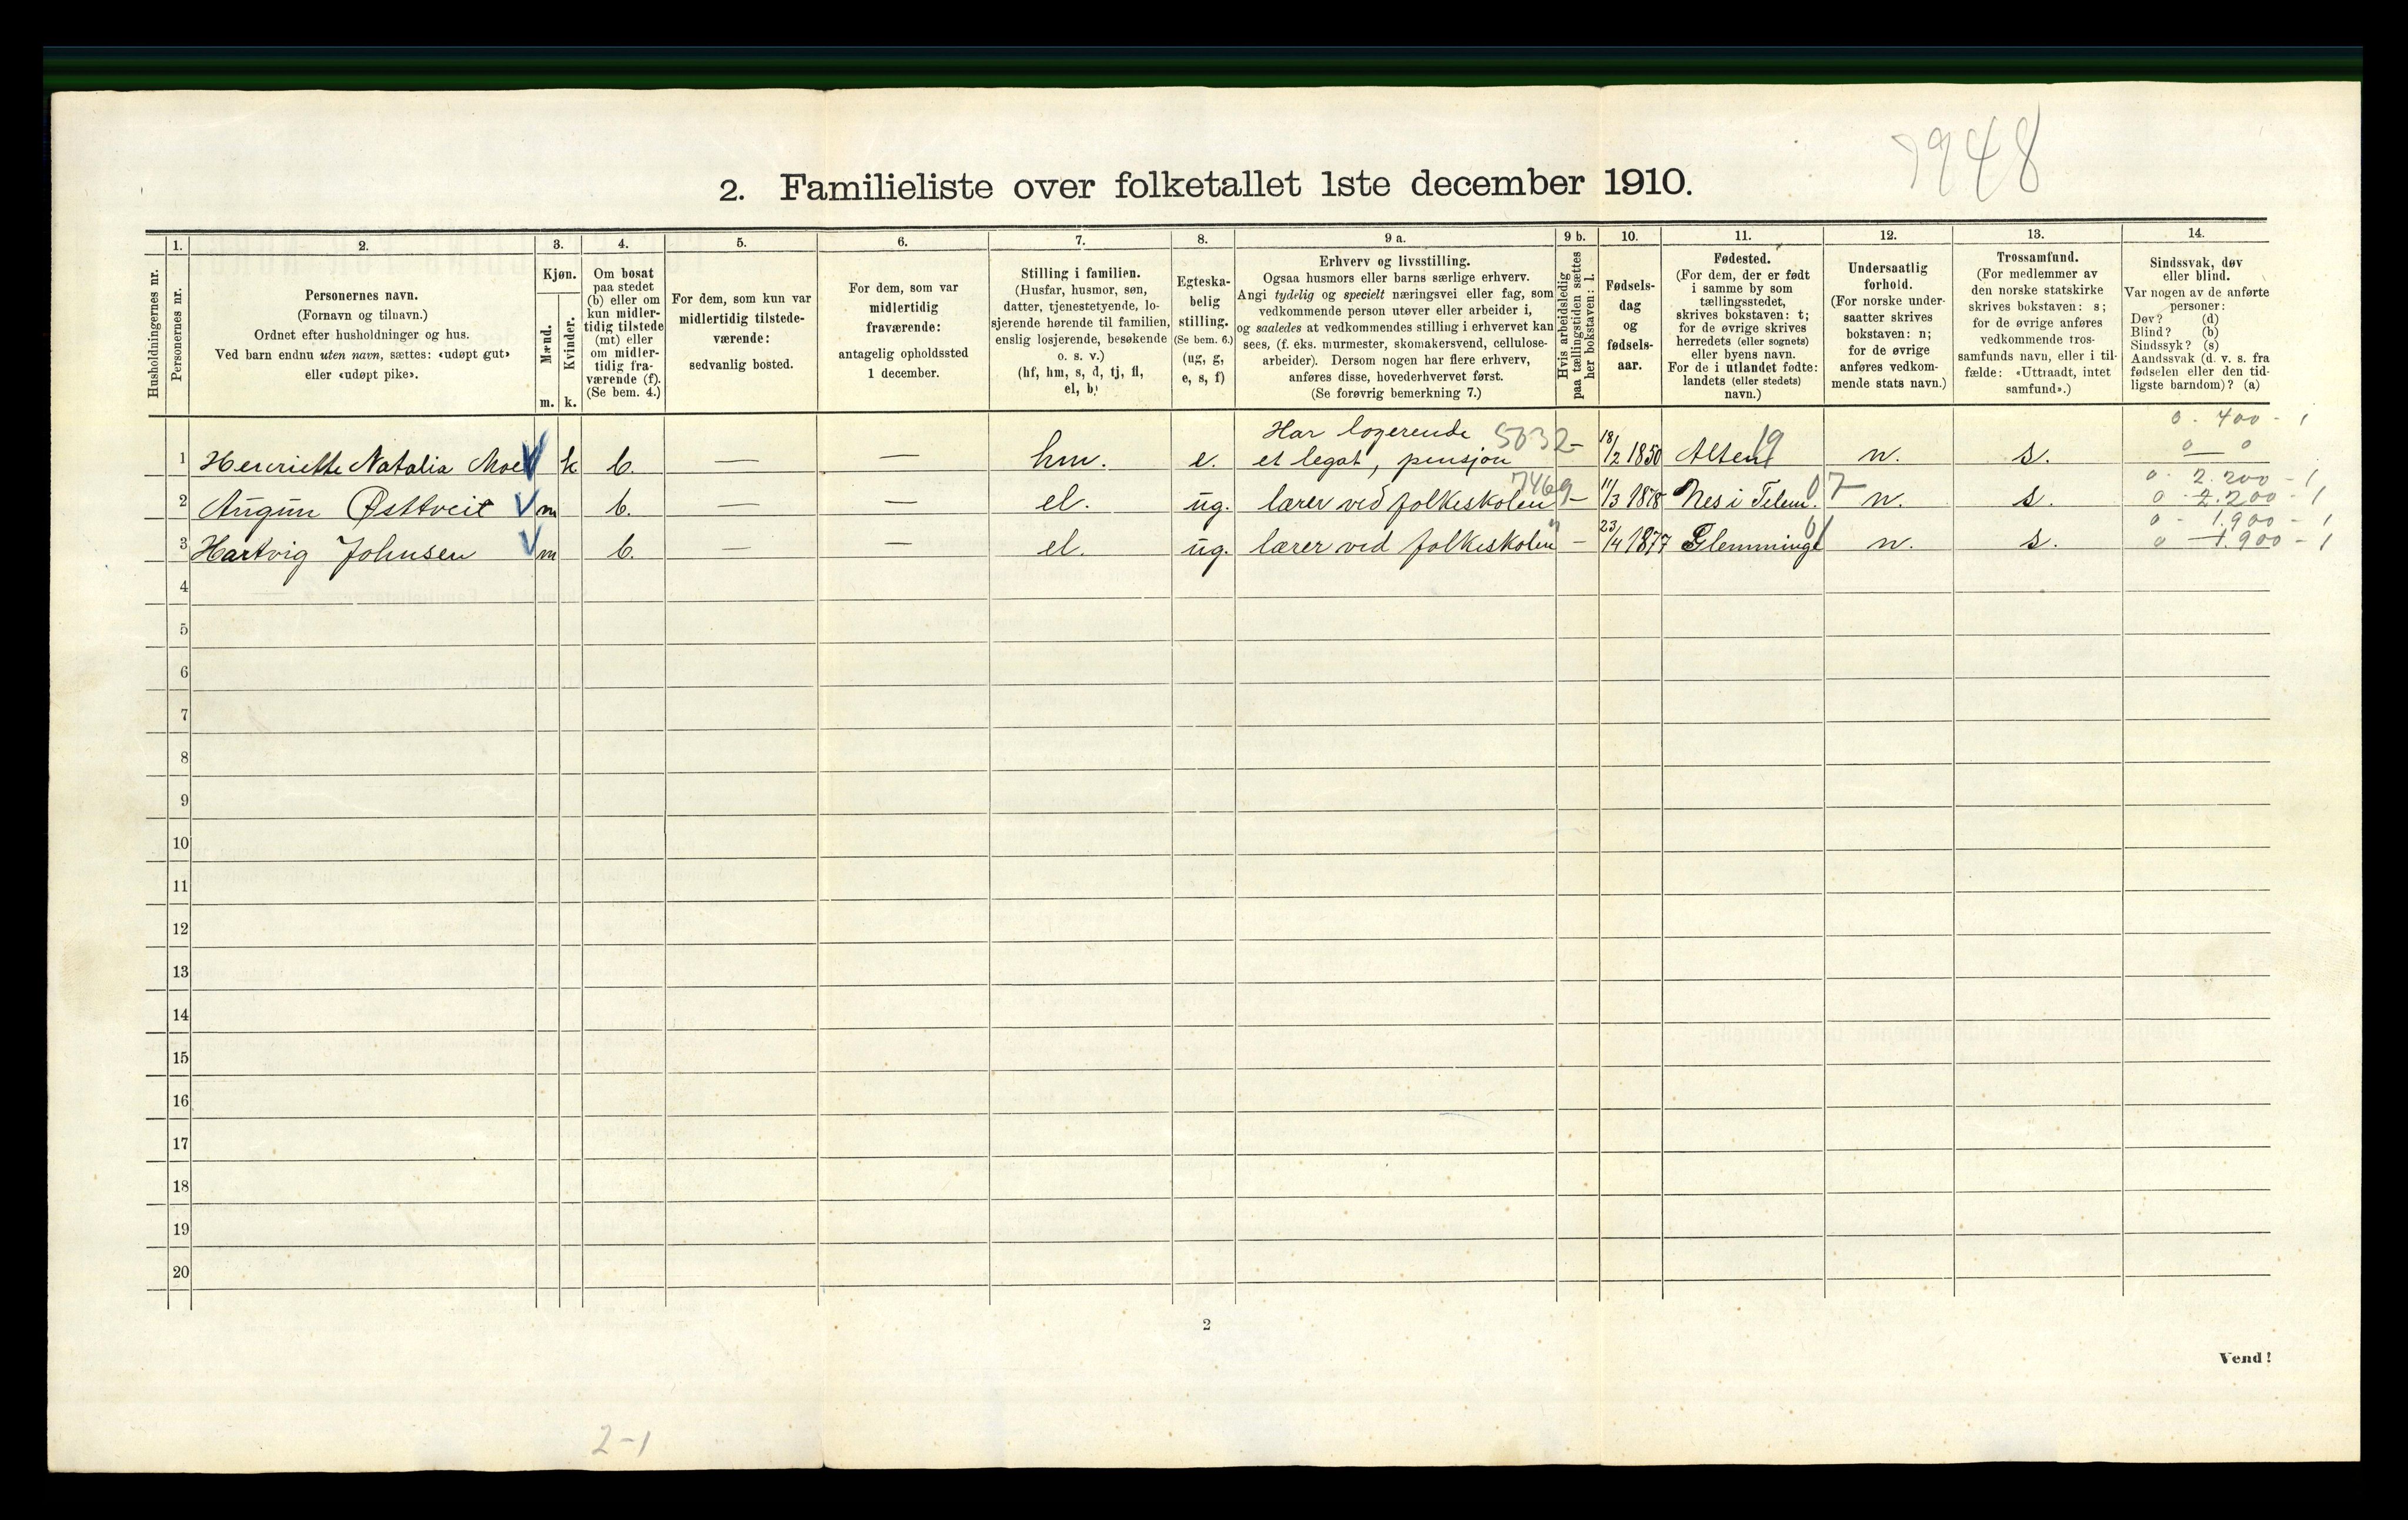 7948
2. Familieliste over folketallet 1ste december 1910.
Husholdningernes nr.
1.
Personernes nr.
2.
Personernes navn.
(Fornavn og tilnavn.)
Ordnet efter husholdninger og hus.
Ved barn endnu uten navn, sættes: «udøpt gut»
eller «udøpt pike».
3.
Kjøn.
Mænd.
Kvinder.
m. k.
4.
Om bosat
paa stedet
(b) eller om
kun midler-
tidig tilstede
(mt) eller
om midler-
tidig fra-
værende (f).
(Se bem. 4.)
5.
For dem, som kun var
midlertidig tilstede-
værende:
sedvanlig bosted.
6.
For dem, som var
midlertidig
fraværende:
antagelig opholdssted
1 december.
7.
Stilling i familien.
(Husfar, husmor, søn,
datter, tjenestetyende, lo-
sjerende hørende til familien,
enslig losjerende, besøkende
o. s. v.)
(hf, hm, s, d, tj, fl,
el, b)
8.
Egteska-
belig
stilling.
(Se bem. 6.)
(ug, g,
e, s, f)
9 a.
Erhverv og livsstilling.
Ogsaa husmors eller barns særlige erhverv.
Angi tydelig og specielt næringsvei eller fag, som
vedkommende person utøver eller arbeider i,
og saaledes at vedkommendes stilling i erhvervet kan
sees, (f. eks. murmester, skomakersvend, cellulose-
arbeider). Dersom nogen har flere erhverv,
anføres disse, hovederhvervet først.
(Se forøvrig bemerkning 7.)
9 b.
Hvis arbeidsledig
paa tællingstiden sættes
her bokstaven: l.
10.
Fødsels-
dag
og
fødsels-
aar.
11.
Fødested.
(For dem, der er født
i samme by som
tællingsstedet,
skrives bokstaven: t;
for de øvrige skrives
herredets (eller sognets)
eller byens navn.
For de i utlandet fødte:
landets (eller stedets)
navn.)
12.
Undersaatlig
forhold.
(For norske under-
saatter skrives
bokstaven: n;
for de øvrige
anføres vedkom-
mende stats navn.)
13.
Trossamfund.
(For medlemmer av
den norske statskirke
skrives bokstaven: s;
for de øvrige anføres
vedkommende tros-
samfunds navn, eller i til-
fælde: «Uttraadt, intet
samfund».)
14.
Sindssvak, døv
eller blind.
Var nogen av de anførte
personer:
Døv? (d)
Blind? (b)
Sindssyk? (s)
Aandssvak (d. v. s. fra
fødselen eller den tid-
ligste barndom)? (a)
Har logerende 5032 0 - 400 - 1
1 Henriette Natalia Moe k b. — — hm. e. et legat, pensjon - 18/2 1850 Alten 19 n. s. 0 0
7469 0 - 2.200 - 1
2 Augun Østtveit m b. — — el. ug. lærer ved folkeskolen - 11/3 1878 Nes i Telem. 07 n. s. 0 - 2.200 - 1
" 0 - 1.900 - 1
3 Hartvig Johnsen m b. — — el. ug. lærer ved folkeskolen - 23/4 1877 Glemminge 01 n. s. 0 - 1.900 - 1
4
5
6
7
8
9
10
11
12
13
14
15
16
17
18
19
20
2
Vend!
2-1